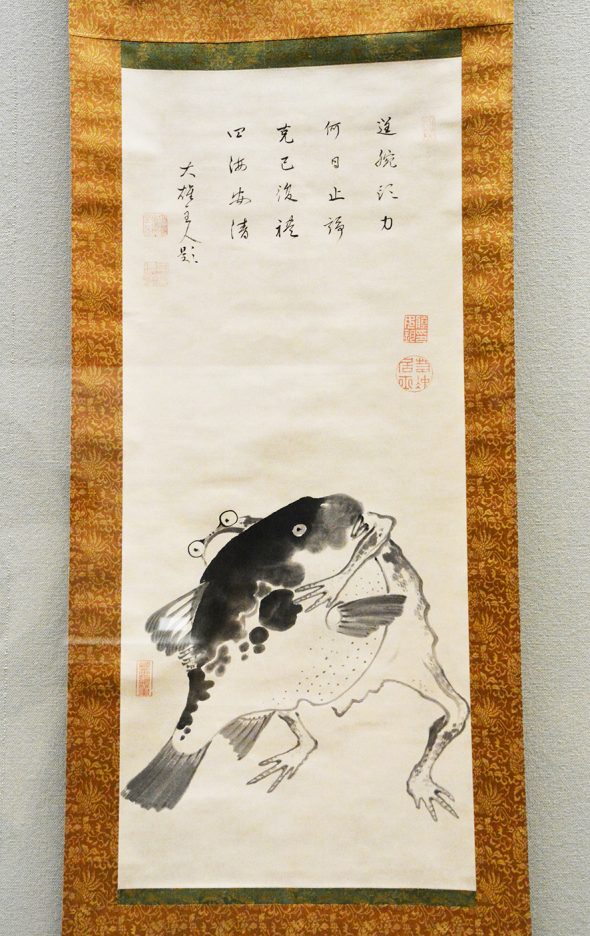 逞腕頭力
何日止諍
克己復禮
四海安清
大雄主人題
若冲居士